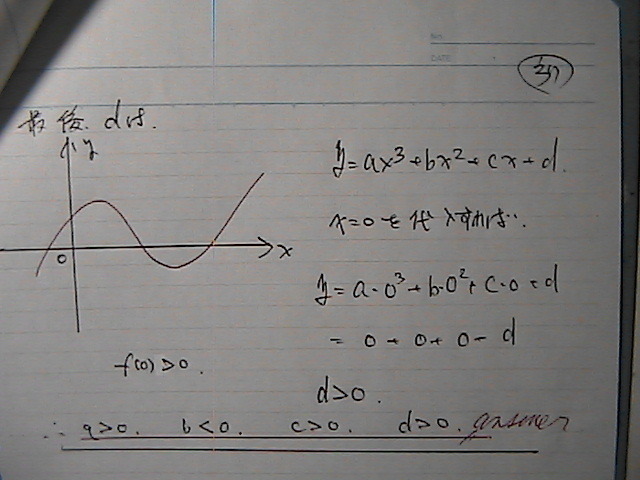 NO.
DATE
最後. dは.
y
y=ax³+bx²+cx+d.
x=0を代入すれば..
0
x
y=a·0³+b·0²+c·0+d
= 0+0+0+d
f(0)>0.
d>0.
∴ a>0. b<0. c>0. d>0. answer